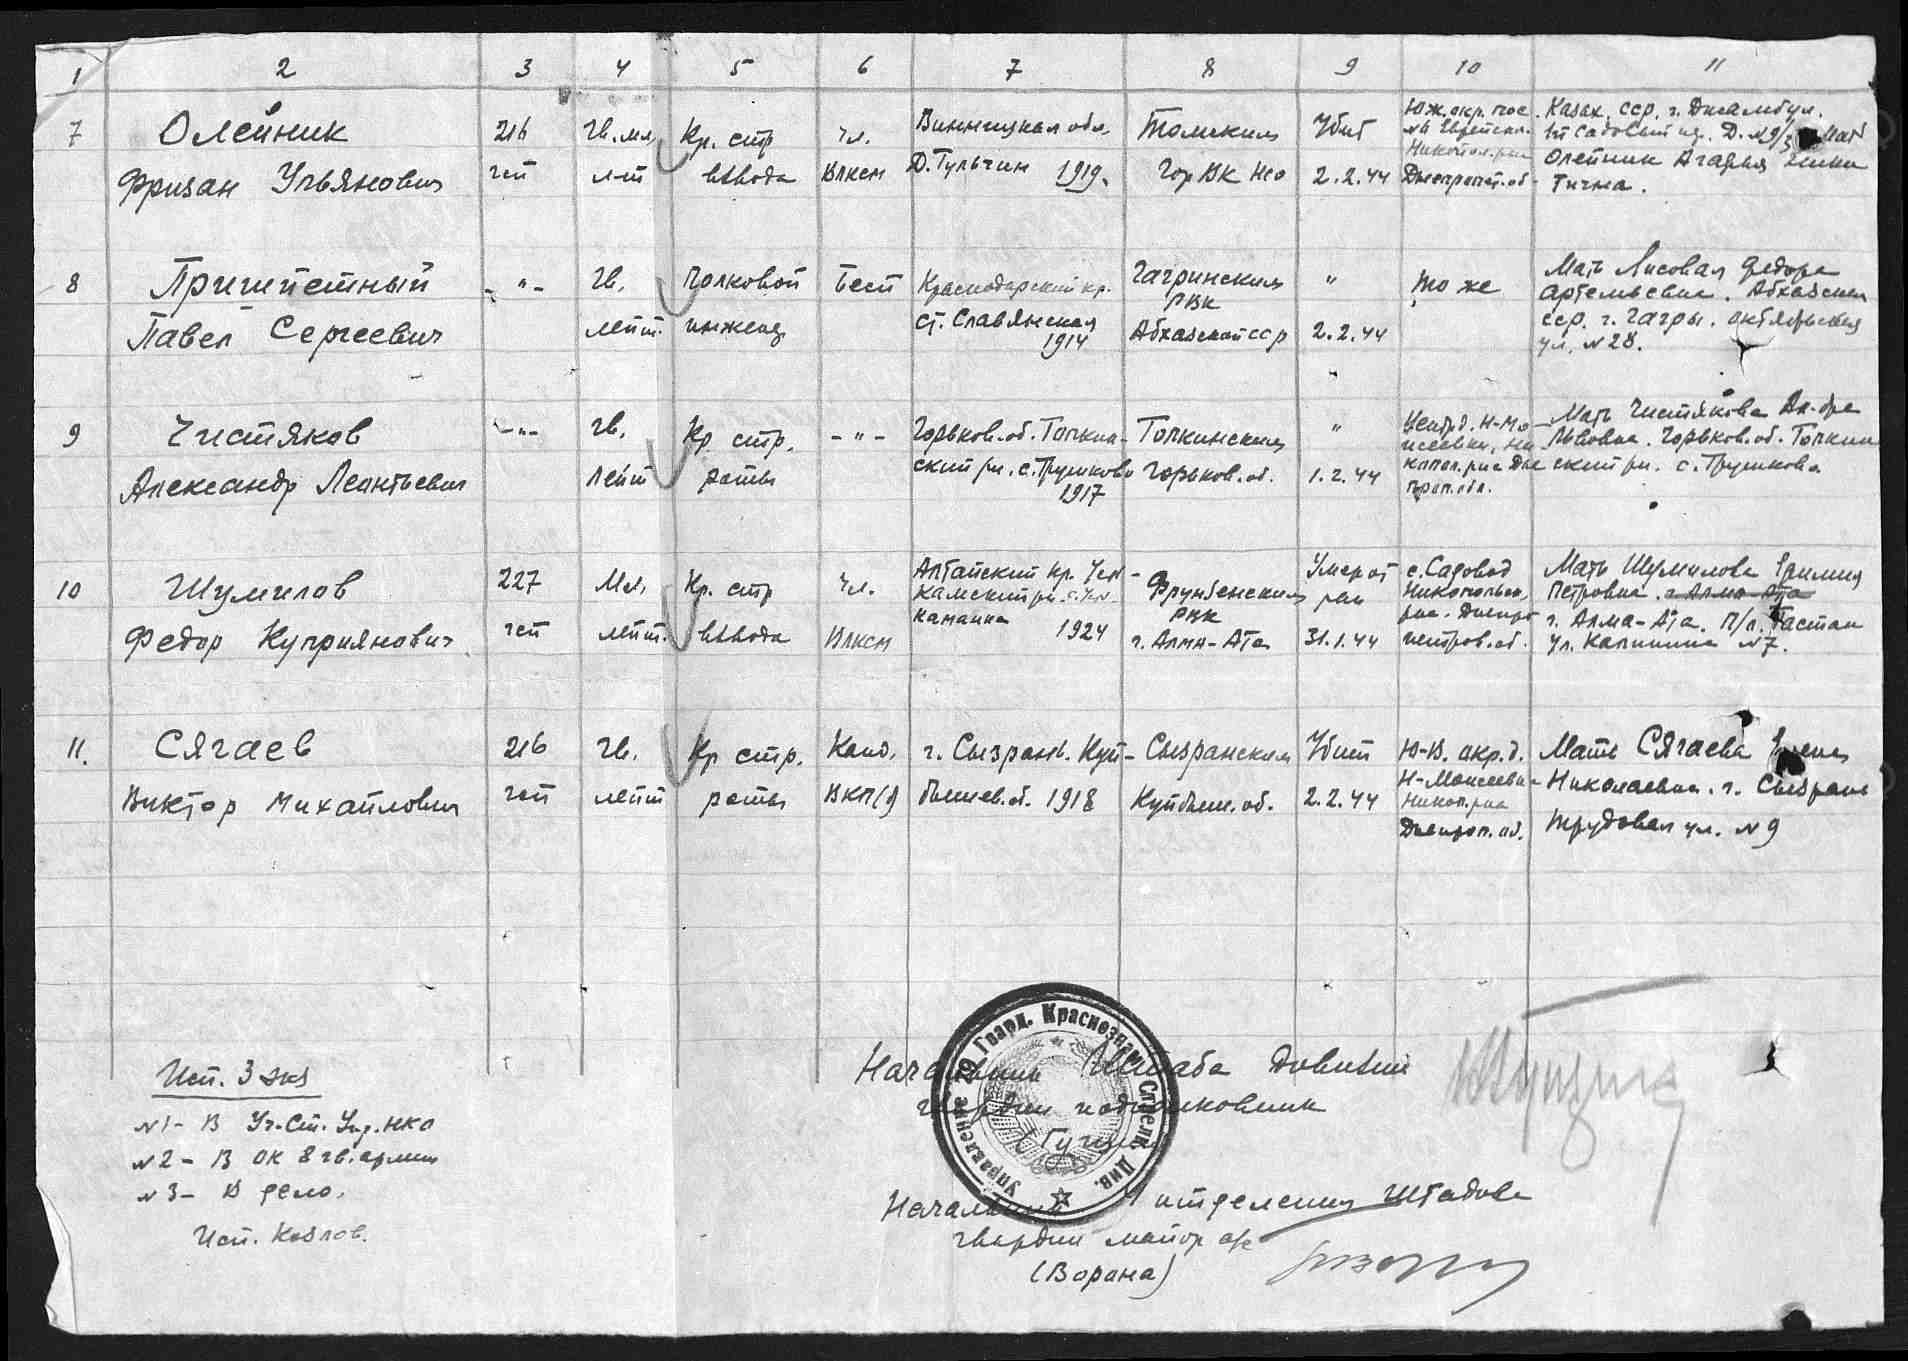 1 2 3 4 5 6 7 8 9 10 11
7 Олейник 216 Гв. мл. Кр. стр чл. Винницкая обл. Томским Убит Юж. окр. пос. Казах. сср. г. Джамбул.
Фризан Ульянович гсп л-т взвода Влксм Д. Тульчин 1919. Гор ВК Нсо 2.2.44 Никопол. р-на Днепропет. об. Олейник Агафья
тична.
8 Пришипетный -"- Гв. полковой Бесп Краснодарский кр. Гагринским " то же Мать Лисовая Федора
Павел Сергеевич лейт. инженер ст. Славянская РВК Артемьевна. Абхазская
1914 Абхазской сср 2.2.44 сср. г. Гагры. октябрьская
ул. №28.
9 Чистяков -"- Гв. Кр. стр. -"- Горьков. об. Толкин- Толкинским " Центр д. Н-Мо- Мать Чистякова
Александр Леонтьевич лейт роты ский рн. с. Трушково Горьков. об. 1.2.44 исеевки, Ни- Львовна. Горьков. об. Толкин
1917 копол. р-на Дне ский рн. с. Трушково
проп. обл.
10 Шумилов 227 Мл. Кр. стр чл. Алтайский кр. Усть- Фрунзенским Умер от с. Садовод Мать Шумилова
Федор Куприянович гсп лейт. взвода Влксм Камский рн. РВК ран Никопольск. Петровна. г. Алма-Ата
1924 г. Алма-Ата 31.1.44 р-на. Днепро г. Алма-Ата. П/л.
петров. об. ул. Калинина №7.
11. Сягаев 216 Гв. Кр стр. Канд. г. Сызрань. Куй- Сызранским Убит Ю-В. окр. д. Мать Сягаева
Виктор Михайлович гсп лейт роты ВКП(б) бышев. об. 1918 Куйбыш. об. 2.2.44 Н-Моисеевка Николаевна. г. Сызрань
Никоп. р-на
Днепроп. об. Трудовая ул. №9
Начальник Штаба Дивизии
гвардии подполковник
Управление 79 Гвард. Краснознам. Стрелк. Див.
Начальник 4 отделения Штадива
гвардии майор а/с
(Ворона)
Исп. 3 экз
№1- В Уч.-Ст. Упр. НКО
№2- В ОК 8 гв. армии
№3- В дело.
Исп. Козлов.